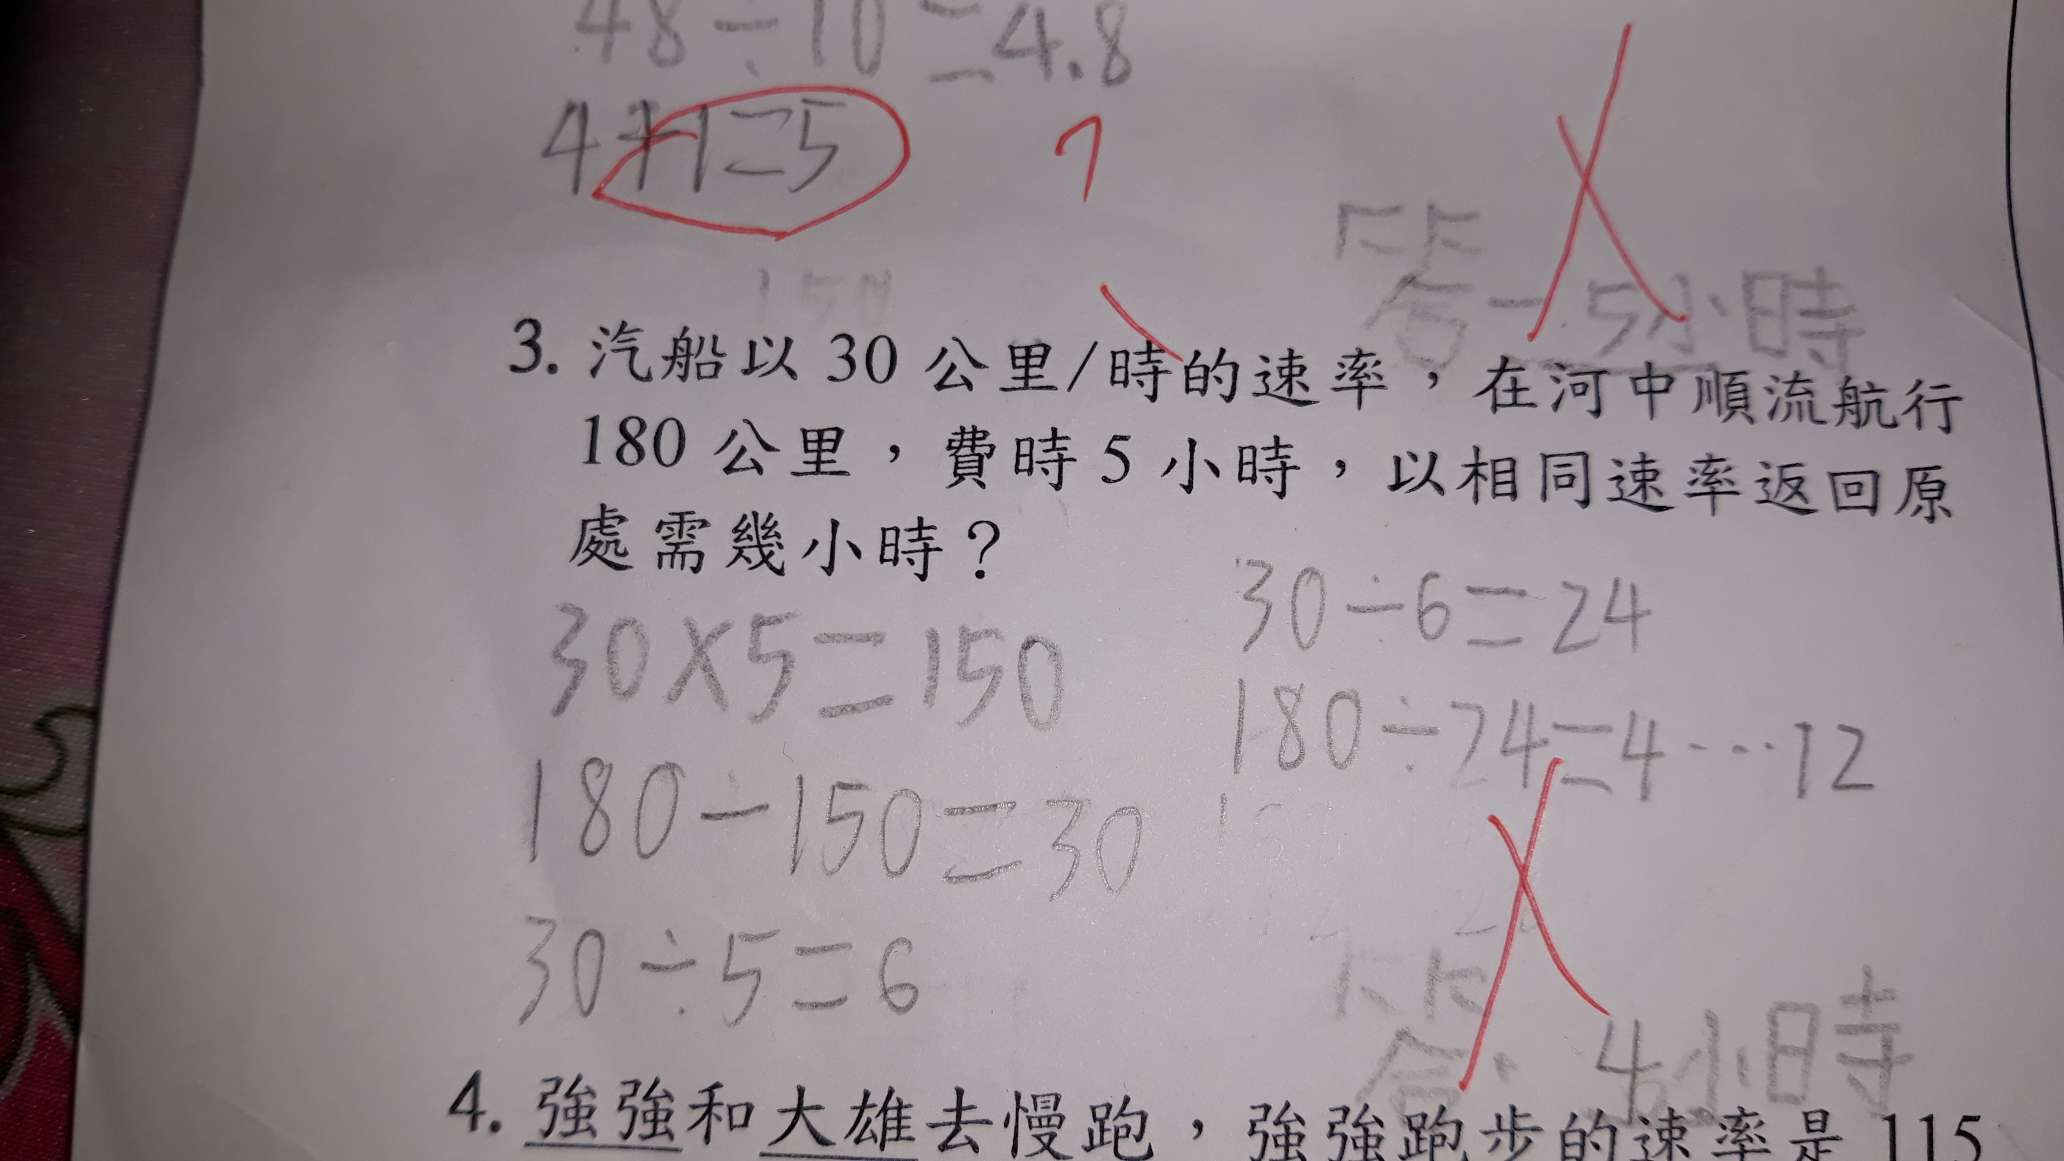 48÷10=4.8
4+1=5
答 5小時
3. 汽船以 30 公里/時的速率，在河中順流航行
180 公里，費時 5 小時，以相同速率返回原
處需幾小時？
30×5=150
180-150=30
30÷5=6
30÷6=24
180÷24=4…12
答: 4小時
4. 強強和大雄去慢跑，強強跑步的速率是 115